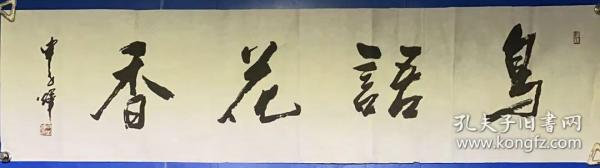 鳥語花香
孔夫子旧书网
www.kongfz.com